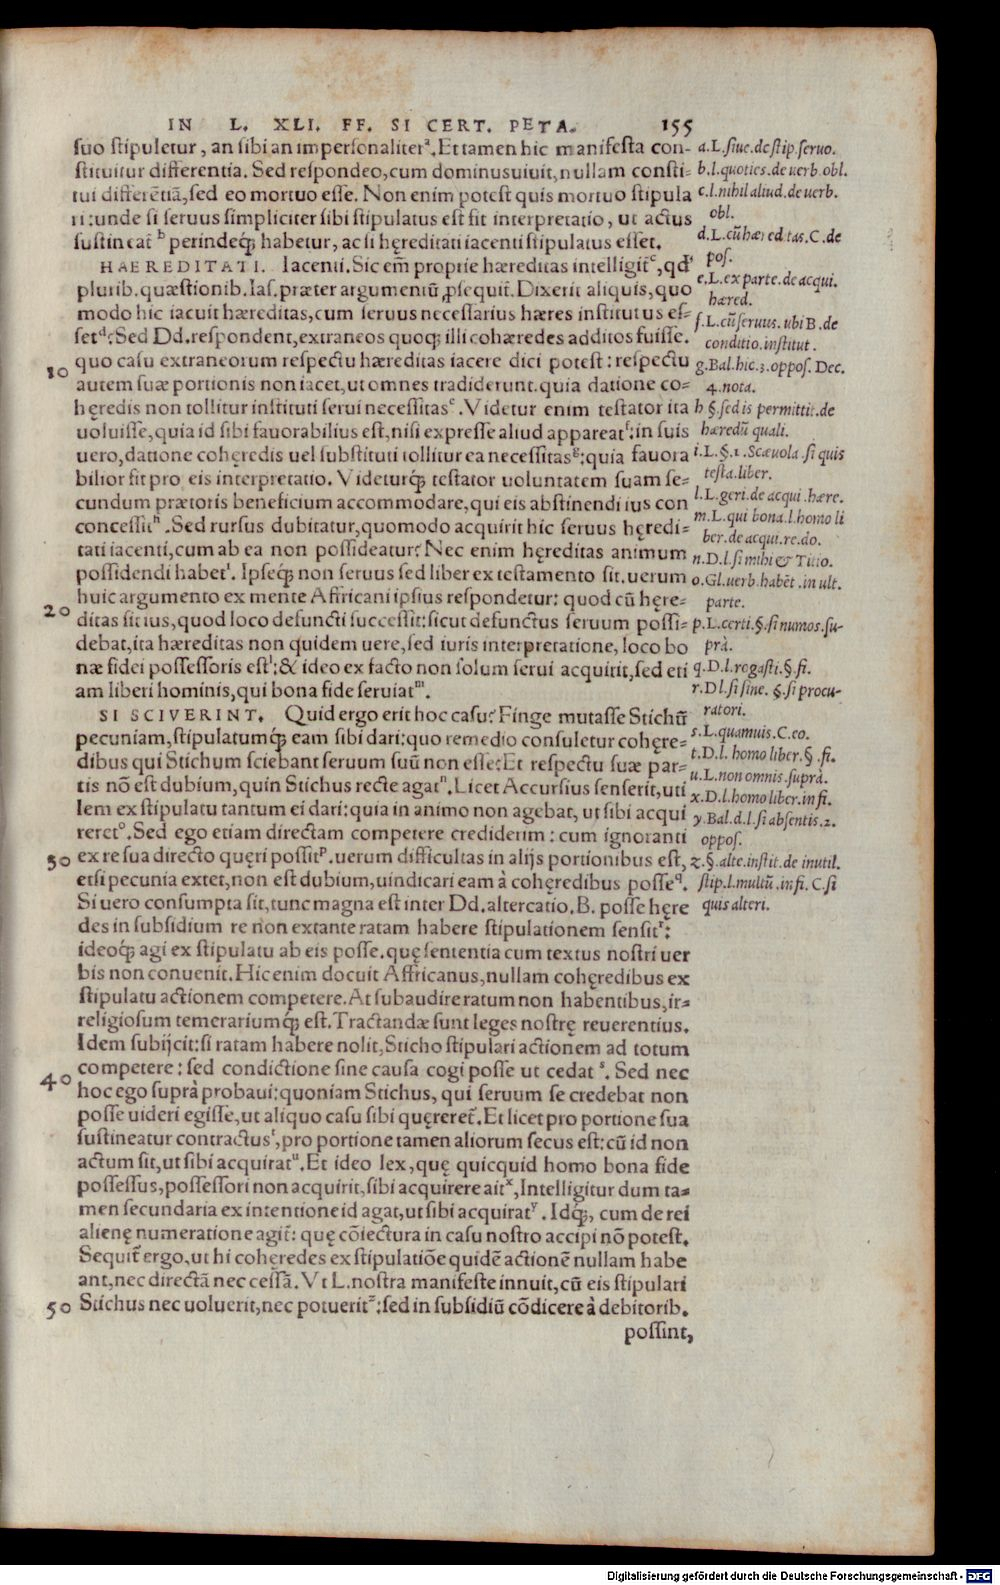 IN L. XLI. FF. SI CERT. PETA. 155
suo stipuletur, an sibi an impersonaliterᵃ. Et tamen hic manifesta con-
stituitur differentia. Sed respondeo, cum dominus uiuit, nullam consti-
tui differẽtiã, sed eo mortuo esse. Non enim potest quis mortuo stipula
ri: unde si seruus simpliciter sibi stipulatus est fit interpretatio, ut actus
sustineat̃ ᵇ perindeq́; habetur, ac si hęreditati iacenti stipulatus esset.
HAEREDITATI. Iacenti. Sic em̃ proprie hæreditas intelligit̃ᶜ, qd'
plurib. quæstionib. Ias. præter argumentũ ꝓsequit̃. Dixerit aliquis, quo
modo hic iacuit hæreditas, cum seruus necessarius hæres institutus es-
setᵈ? Sed Dd. respondent, extraneos quoq; illi cohæredes additos fuisse.
10 quo casu extraneorum respectu hæreditas iacere dici potest: respectu
autem suæ portionis non iacet, ut omnes tradiderunt. quia datione co-
hęredis non tollitur instituti serui necessitasᵉ. Videtur enim testator ita
uoluisse, quia id sibi fauorabilius est, nisi expresse aliud appareatᶠ: in suis
uero, datione cohęredis uel substituti tollitur ea necessitasᵍ: quia fauora
bilior fit pro eis interpretatio. Videturq́; testator uoluntatem suam se-
cundum prætoris beneficium accommodare, qui eis abstinendi ius con
concessitʰ. Sed rursus dubitatur, quomodo acquirit hic seruus hęredi-
tati iacenti, cum ab ea non possideatur? Nec enim hęreditas animum
possidendi habetⁱ. Ipseq́; non seruus sed liber ex testamento sit. uerum
20 huic argumento ex mente Affricani ipsius respondetur: quod cũ hęre-
ditas sit ius, quod loco defuncti successit: sicut defunctus seruum possi-
debat, ita hæreditas non quidem uere, sed iuris interpretatione, loco bo
næ fidei possessoris estˡ: & ideo ex facto non solum serui acquirit, sed eti
am liberi hominis, qui bona fide seruiatᵐ.
SI SCIVERINT. Quid ergo erit hoc casu? Finge mutasse Stichũ
pecuniam, stipulatumq́; eam sibi dari: quo remedio consuletur cohęre-
dibus qui Stichum sciebant seruum suũ non esse? Et respectu suæ par-
tis nõ est dubium, quin Stichus recte agatⁿ. Licet Accursius senserit, uti
lem ex stipulatu tantum ei dari: quia in animo non agebat, ut sibi acqui
reretᵒ. Sed ego etiam directam competere crediderim: cum ignoranti
30 ex re sua directo quęri possitᵖ. uerum difficultas in alijs portionibus est,
etsi pecunia extet, non est dubium, uindicari eam à cohęredibus posse𐞥.
Si uero consumpta sit, tunc magna est inter Dd. altercatio. B. posse hęre
des in subsidium re non extante ratam habere stipulationem sensitʳ:
ideoq́; agi ex stipulatu ab eis posse. quę sententia cum textus nostri uer
bis non conuenit. Hic enim docuit Affricanus, nullam cohęredibus ex
stipulatu actionem competere. At subaudire ratum non habentibus, ir-
religiosum temerariumq́; est. Tractandæ sunt leges nostrę reuerentius.
Idem subijcit: si ratam habere nolit, Sticho stipulari actionem ad totum
40 competere: sed condictione sine causa cogi posse ut cedat ˢ. Sed nec
hoc ego suprà probaui: quoniam Stichus, qui seruum se credebat non
posse uideri egisse, ut aliquo casu sibi quęreret̃. Et licet pro portione sua
sustineatur contractusᵗ, pro portione tamen aliorum secus est: cũ id non
actum sit, ut sibi acquiratᵘ. Et ideo lex, quę quicquid homo bona fide
possessus, possessori non acquirit, sibi acquirere aitˣ, Intelligitur dum ta-
men secundaria ex intentione id agat, ut sibi acquiratʸ. Idq́;, cum de rei
alienę numeratione agit̃: quę cõiectura in casu nostro accipi nõ potest.
Sequit̃ ergo, ut hi cohęredes ex stipulatiõe quidẽ actionẽ nullam habe
ant, nec directã nec cessã. Vt L. nostra manifeste innuit, cũ eis stipulari
50 Stichus nec uoluerit, nec potueritᶻ: sed in subsidiũ cõdicere à debitorib.
possint,
a. L. siue. de stip. seruo.
b. l. quoties. de uerb. obl.
c. l. nihil aliud. de uerb.
obl.
d. L. cũ hæreditas. C. de
pos.
e. L. ex parte. de acqui.
hæred.
f. L. cũ seruus. ubi B. de
conditio. institut.
g. Bal. hic. 3. oppos. Dec.
4. nota.
h §. sed is permittit. de
hæredũ quali.
i. L. §. 1. Scæuola. si quis
testa. liber.
l. L. geri. de acqui. hære.
m. L. qui bona. l. homo li
ber. de acqui. re. do.
n. D. l. si mihi & Titio.
o. Gl. uerb. habẽt. in ult.
parte.
p. L. certi. §. si numos. su-
prà.
q. D. l. rogasti. §. fi.
r. D l. si sine. §. si procu-
ratori.
s. L. quamuis. C. eo.
t. D. l. homo liber. §. fi.
u. L. non omnis. suprà.
x. D. l. homo liber. in fi.
y. Bal. d. l. si absentis. 2.
oppos.
z. §. alte. instit. de inutil.
stip. l. multũ. in fi. C. si
quis alteri.
Digitalisierung gefördert durch die Deutsche Forschungsgemeinschaft - DFG